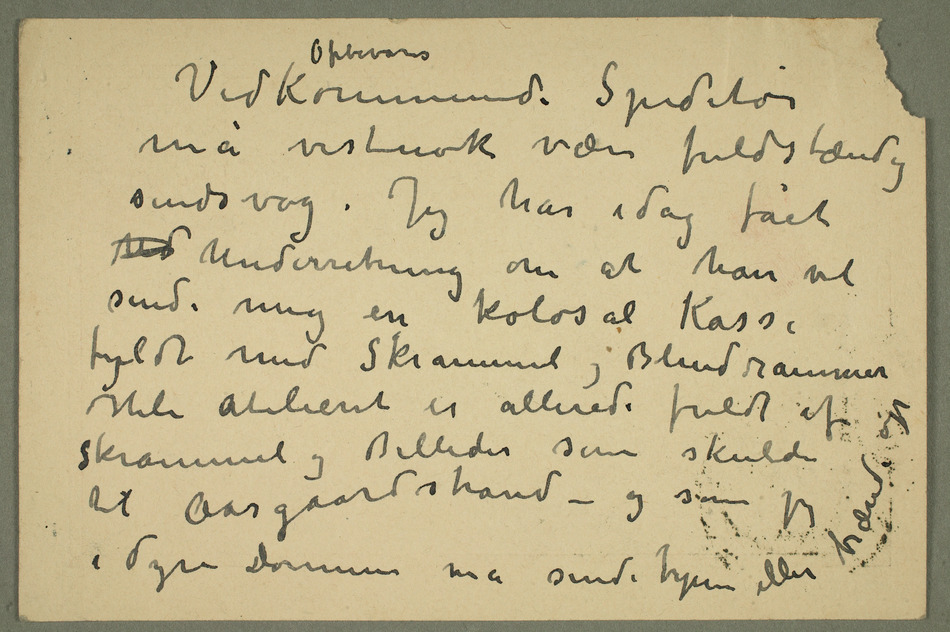 Opbevares
Vedkommende Speditør
må vistnok være fuldstændig
sindsvag. Jeg har idag fået
Underretning om at han vil
sende mig en kolosal Kasse
fyldt med Skrammel og Blendrammer
Hele Atelieret er allerede fuldt af
Skrammel og Billeder som skulde
til Aasgaardstrand – og som jeg
i dyre Domme må sende hjem eller
brænde op